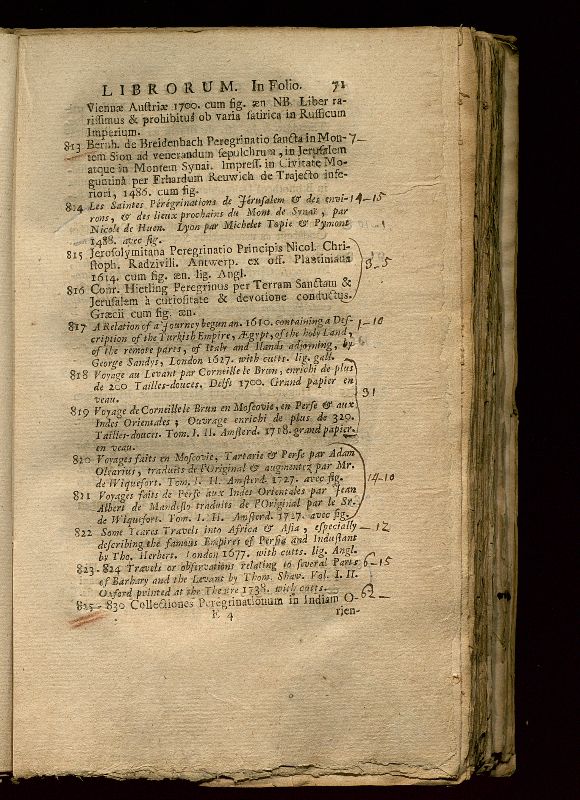 LIBRORUM. In Folio. 71
Viennæ Austriæ 1700. cum fig. æn NB. Liber ra-
rissimus & prohibitus ob varia satirica in Russicum
Imperium.
813 Bernh. de Breidenbach Peregrinatio sancta in Mon- 7-
tem Sion ad venerandum sepulchrum, in Jerusalem
atque in Montem Synai. Impress. in Civitate Mo-
guntina per Erhardum Reuwich de Trajecto infe-
riori, 1486. cum fig.
814 Les Saintes Pérégrinations de Jérusalem & des envi- 14-15
rons, & des lieux prochains du Mont de Synaï, par
Nicole de Huen. Lyon par Michelet Topie & Pymont
1488. avec fig.
815 Jerosolymitana Peregrinatio Principis Nicol. Chri-
stoph. Radzivili. Antwerp. ex off. Plantiniana
1614. cum fig. æn. lig. Angl. 3-5
816 Conr. Hietling Peregrinus per Terram Sanctam &
Jerusalem à curiositate & devotione conductus.
Græcii cum fig. æn.
817 A Relation of a Journey begun an. 1610. containing a Des- 1-10
cription of the Turkish Empire, Ægypt, of the holy Land,
of the remote parts, of Italy and Ilands adjoyning, by
George Sandys, London 1627. with cutts. lig. gall.
818 Voyage au Levant par Corneille le Brun, enrichi de plus
de 200 Tailles-douces. Delft 1700. Grand papier en
veau. 31
819 Voyage de Corneille le Brun en Moscovie, en Perse & aux
Indes Orientales; Ouvrage enrichi de plus de 320.
Tailles-douces. Tom. I. II. Amsterd. 1718. grand papier.
en veau.
820 Voyages faits en Moscovie, Tartarie & Perse par Adam
Olearius, traduits de l'Original & augmentez par Mr.
de Wiquefort. Tom. I. II. Amsterd. 1727. avec fig. 14-10
821 Voyages faits de Perse aux Indes Orientales par Jean
Albert de Mandeslo traduits de l'Original par le Sr.
de Wiquefort. Tom. I. II. Amsterd. 1727. avec fig.
822 Some Yeares Travels into Africa & Asia, especially -12
describing the famous Empires of Persia and Industant
by Tho. Herbert. London 1677. with cutts. lig. Angl.
823-824 Travels or observations relating to several Parts 6-15
of Barbary and the Levant by Thom. Shaw. Vol. I. II.
Oxford printed at the Theatre 1738. with cutts.
825-830 Collectiones Peregrinationum in Indiam O- 62-
E 4 rien-